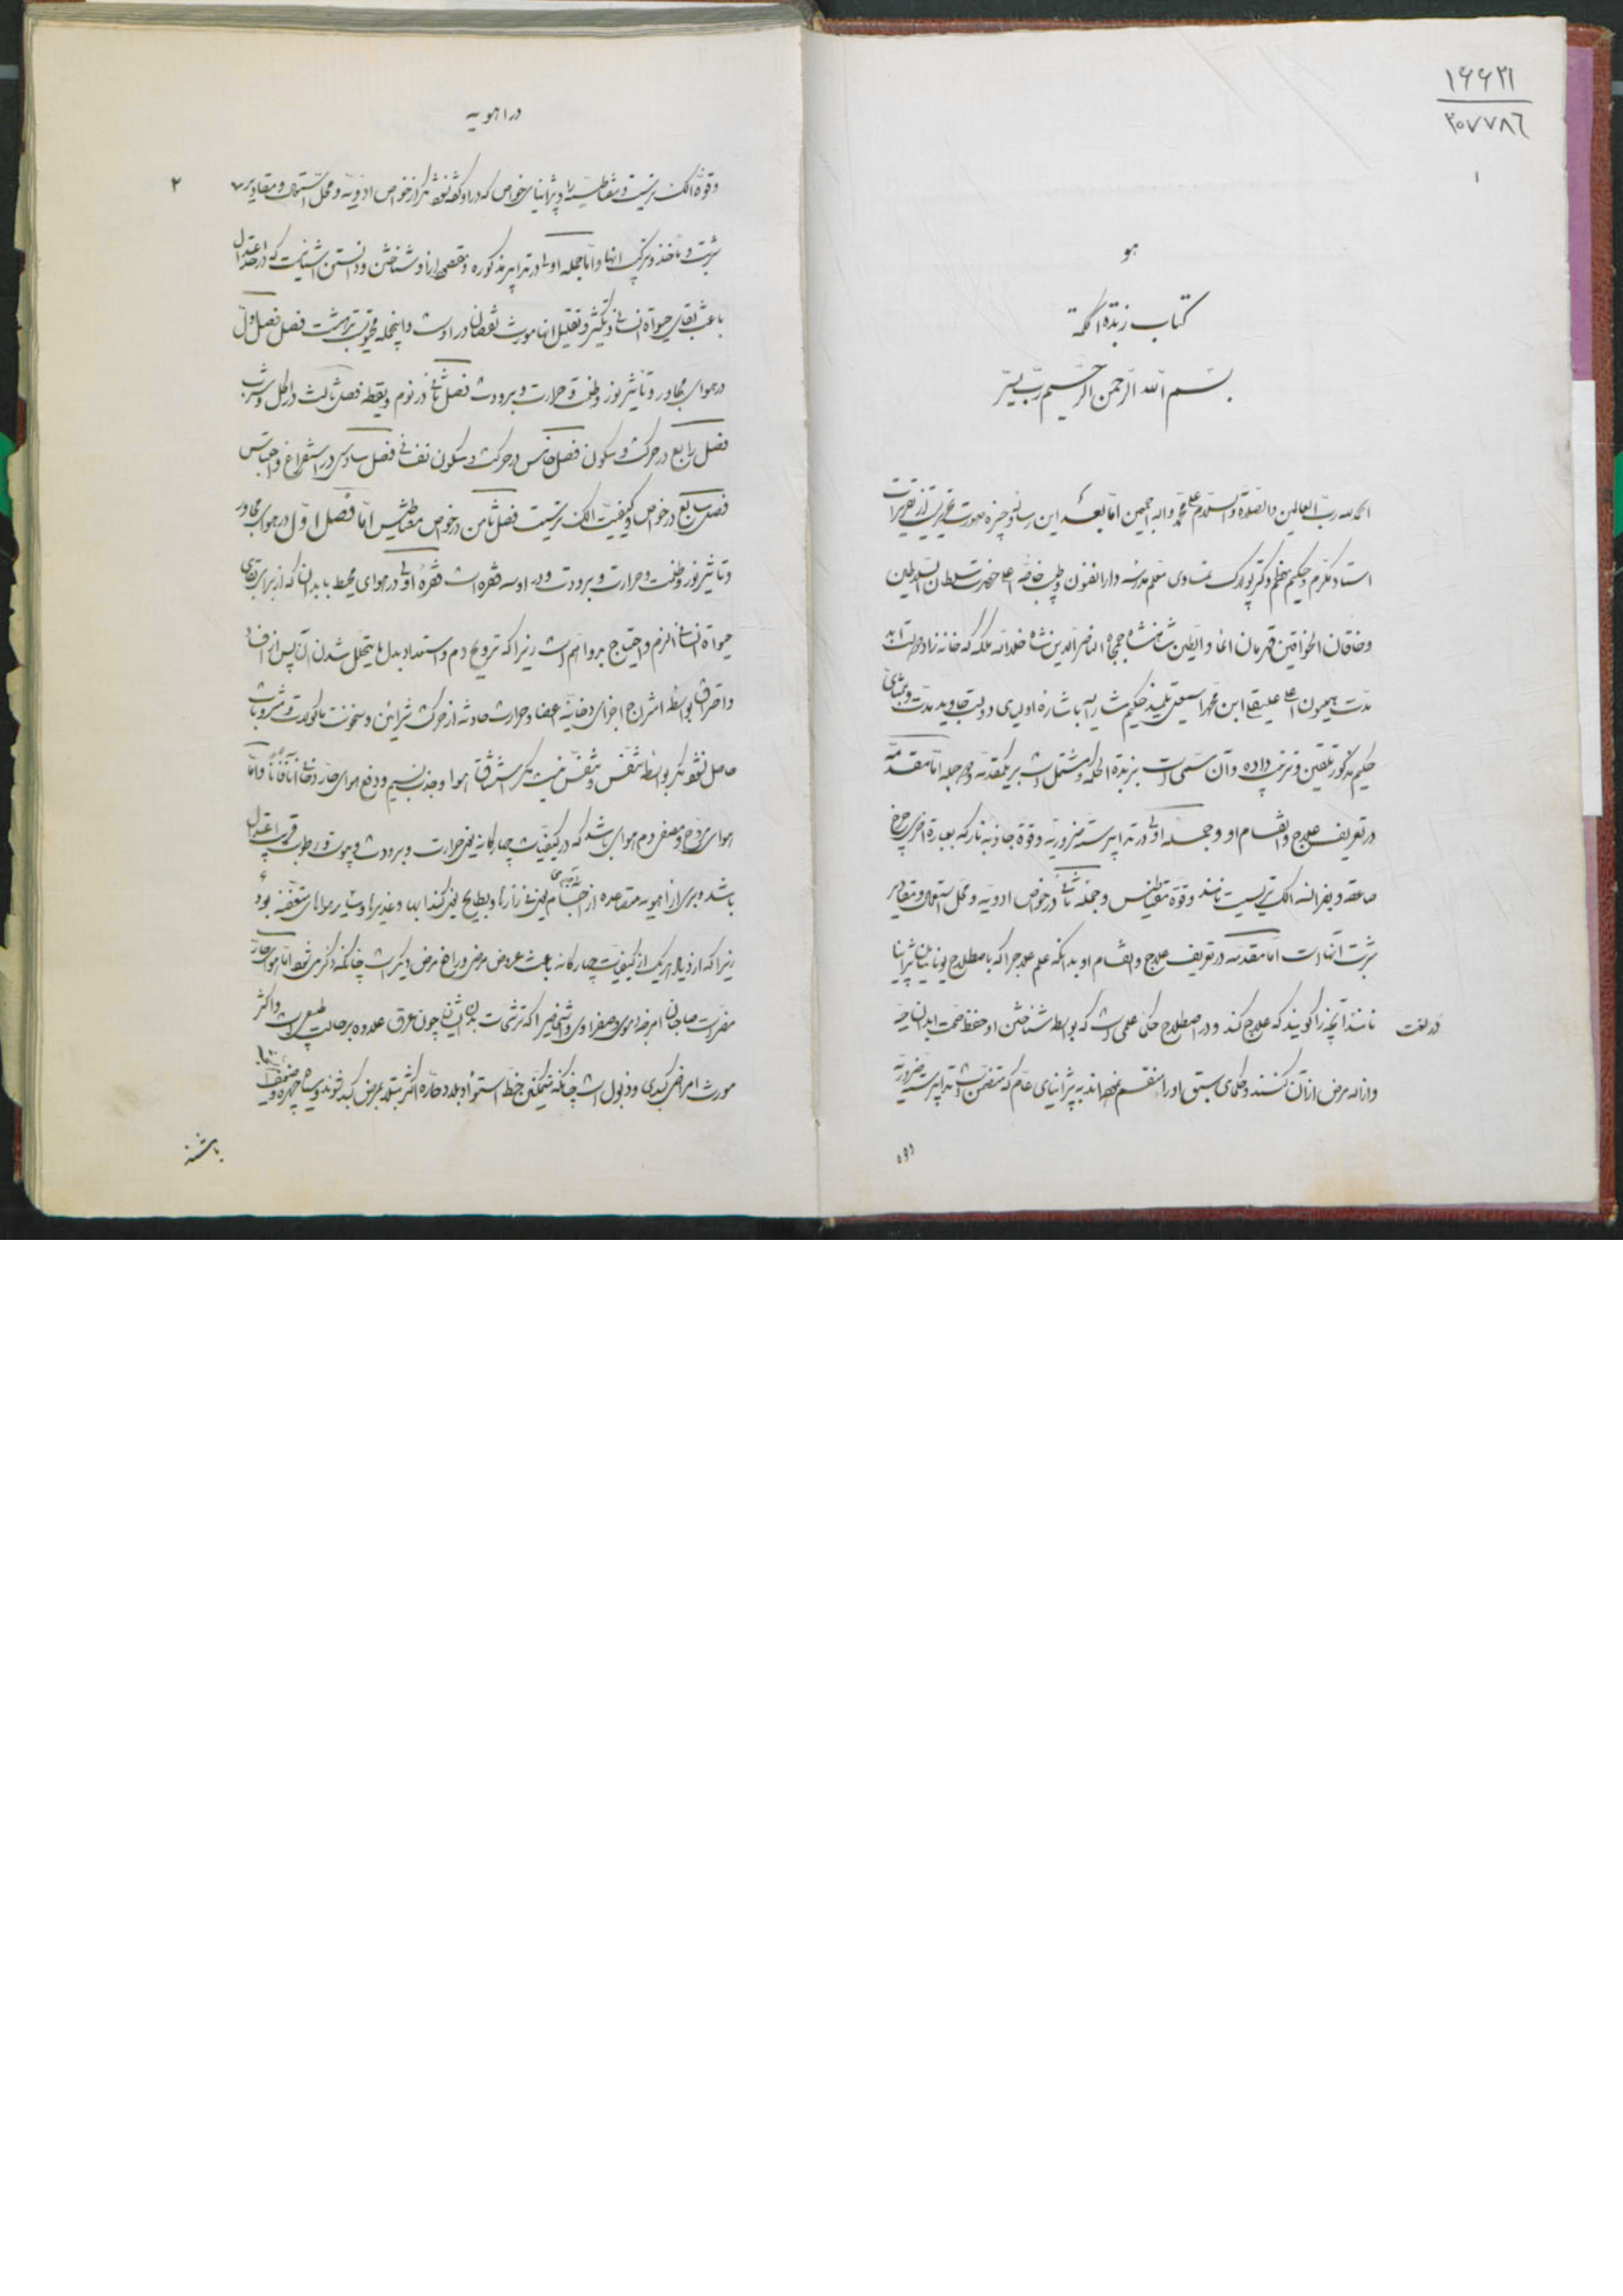 ۱۶۶۳۱
۲۰۷۷۸۶
۱
هو
کتاب زبدة الحکمة
بسم الله الرحمن الرحیم رب یسر
الحمد لله رب العالمین والصلوة والسلام علی محمد واله اجمعین اما بعد این رساله وجیزه صورت تحریریست از تقریرات
استاد مکرم و حکیم معظم دکتر پولاک نمساوی معلم مدرسه دارالفنون و طبیب خاصه اعلیحضرت سلطان السلاطین
وخاقان الخواقین قهرمان الماء والطین شاهنشاه جمجاه الناصرالدین شاه خلدالله ملکه که خانه زاد دولت ابد
مدت همیون اعلی علینقی ابن محمد اسمعیل تلمیذ حکیم مشارالیه باشاره اولیای دولت جاوید مدت
حکیم مذکور تلقین و ترتیب داده و آن مسمی است بزبدة الحکمة و مشتمل است بر یکمقدمه و دو جمله اما مقدمه
در تعریف علاج واقسام او و جمله اولی در تدابیر سته ضروریه و قوه جاذبه نار که بعبارة اخری چرخ
صاعقه و بفرانسه الکتریسیت نامند وقوة مغناطیس وجمله ثانی در خواص ادویه ومحل استعمال ومقادیر
شربت آنها است اما مقدمه در تعریف علاج واقسام او بدانکه علم علاج را که باصطلاح یونانیان
نامند آنچیز را گویند که علاج کند و در اصطلاح حکما علمی است که بواسطه شناختن او حفظ صحت ابدان صحیه
در لغت
وازاله مرض از آن کنند وحکمای سبق اورا منقسم نموده اند به عام که متضمن است تدابیر سته ضروریه
وقوه
در اهویه
۲
وقوه الکتریسیت ومغناطیسیه را و خواص که در او گفتگو میشود از خواص ادویه ومحل استعمال ومقادیر
شربت و ماخذ وترکیب انها واما جمله اولی در تدابیر مذکوره ومقصود از او شناختن ودانستن اشیائیست که در حد اعتدال
باعث بقای حیوة انسانی وتکثیر وتقلیل انها مورث نقصان در اوست واینجمله محتوی بر هشت فصل فصل اول
در هوای مجاور و تاثیر نور وظلمت وحرارت وبرودت فصل ثانی در نوم ویقظه فصل ثالث در اکل وشرب
فصل رابع در حرکت وسکون فصل خامس در حرکت وسکون نفسانی فصل سادس در استفراغ واحتباس
فصل سابع در خواص وکیفیت الکتریسیت فصل ثامن در خواص مغناطیس اما فصل اول در هوای مجاور
وتاثیر نور وظلمت وحرارت وبرودت ودر او سه فقره است فقره اولی در هوای محیط بابدان که از برای بقای
حیوة انسانی الزم واحتیاج بدو اهم است زیرا که ترویح دم واستمداد بدل ما یتحلل شدن آن پس از
واحتراق بواسطه امتزاج اجزای دخانیه اعضا وحرارت حادثه از حرکت شرائین وسخونت ماکولات ومشروبات
حاصل نشود مگر بواسطه تنفس وتنفس نیست مگر استنشاق هوا وجذب نسیم ودفع هوای حار دخانی واما
هوای مروح ومصفی دم هوائی باشد که در کیفیات چهارگانه یعنی حرارت وبرودت ویبوست ورطوبت قریب باعتدال
باشد وبری از اهویه متصاعده از یعنی نی زارها وبطایح یعنی گنداب ها وغدیرها وسایر هواهای متعفنه بود
زیرا که ازدیاد هریک از کیفیات چهارگانه باعث عروض مرض ورافع مرض دیگر است چنانکه ذکر میشود اما هوای حار
مضر است صاحبان امزجه دموی وصفراوی را زیرا که ترشحات بدن ایشان چون عرق علاوه بر حالت طبیعی است واکثر
مورث امراض کبدی وذبول است چنانکه متمکنین خط استوا وبلاد حاره اکثر مبتلا بمرض کبد شوند وسیاه چهره وضعیف
باشند